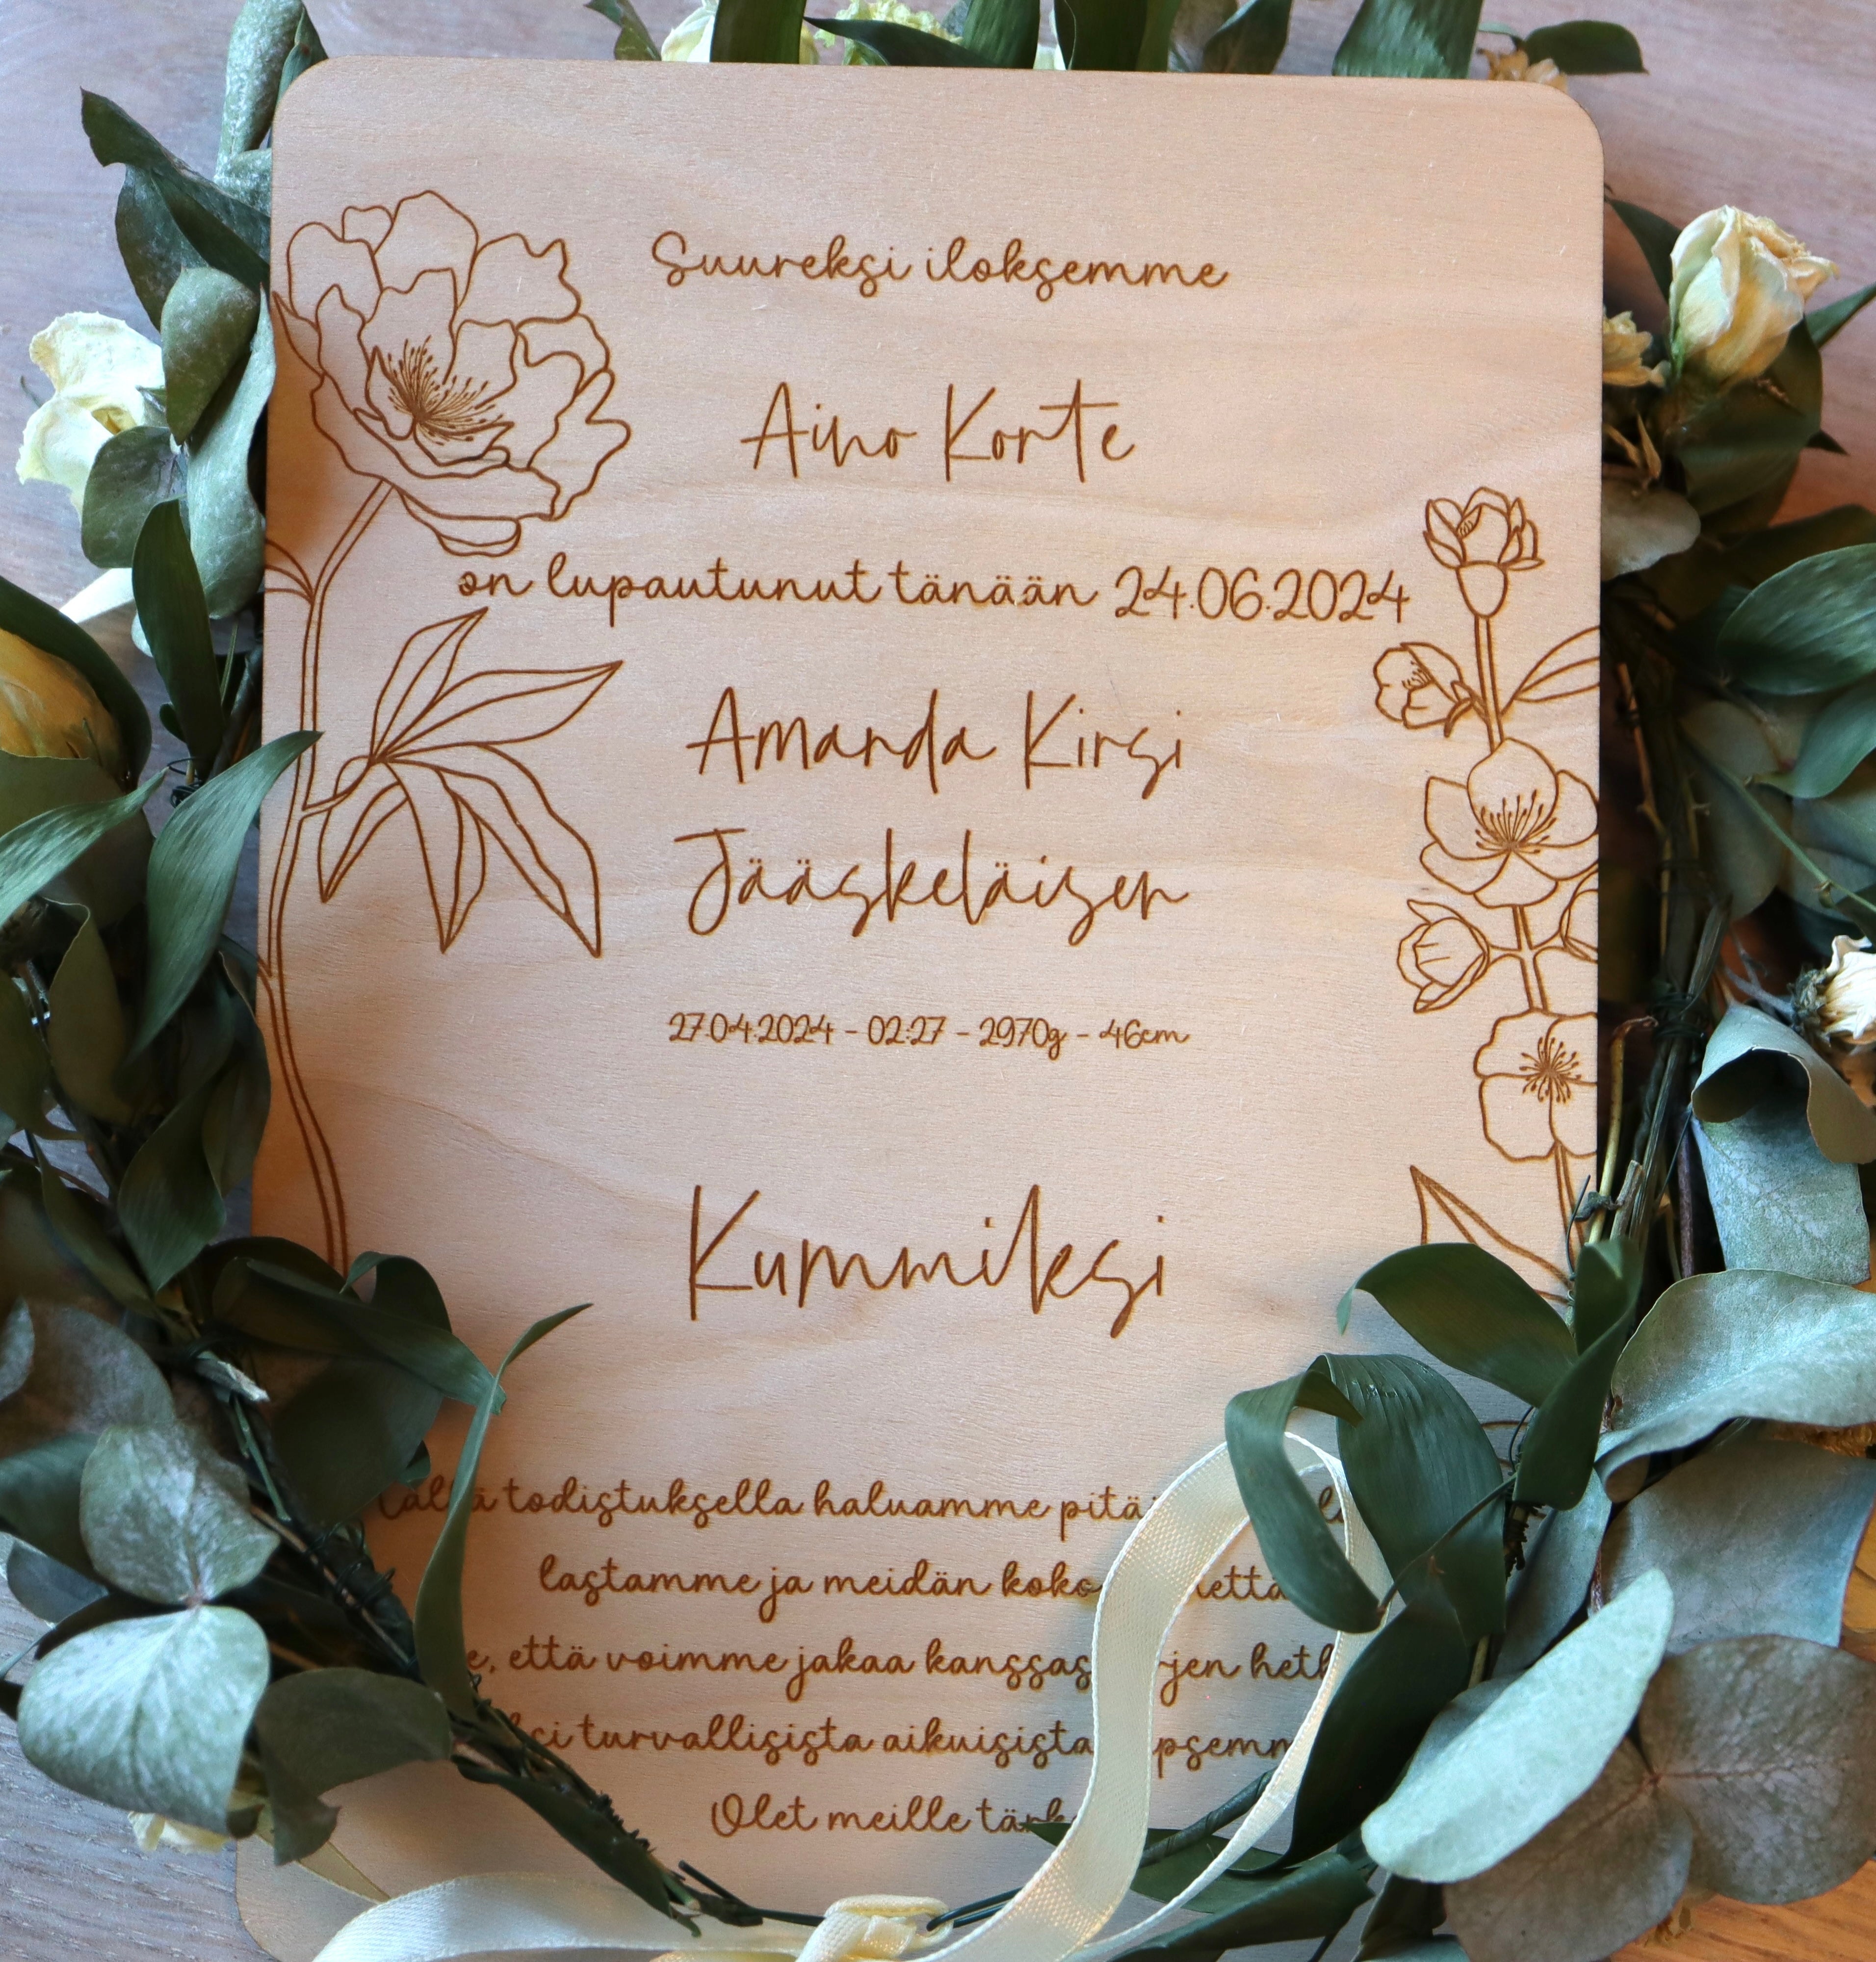 Suureksi iloksemme
Aino Korte
on lupautunut tänään 24.06.2024
Amanda Kirsi
Jääskeläisen
27.04.2024 - 02:27 - 2970g - 46cm
Kummiksi
Tällä todistuksella haluamme
lastamme ja meidän
että voimme jakaa
turvallisista aikuisista
Olet meille